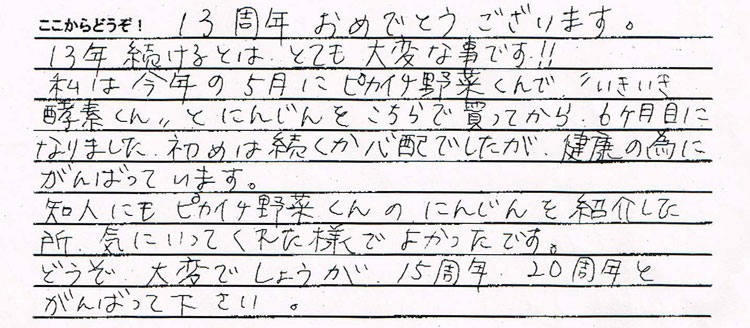 ここからどうぞ! 13周年 おめでとう ございます。
13年 続けるとは とても 大変な事です!!
私は今年の5月にピカイチ野菜くんで〝いきいき
酵素くん〟とにんじんをこちらで買ってから、6ヶ月目に
なりました、初めは続くか心配でしたが、健康の為に
がんばっています。
知人にもピカイチ野菜くんのにんじんを紹介した
所、気にいってくれた様でよかったです。
どうぞ、大変でしょうが、15周年、20周年と
がんばって下さい。